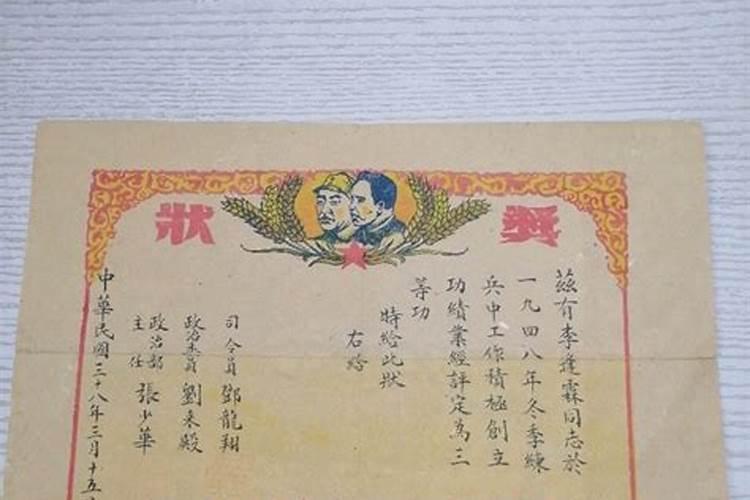 獎狀
茲有李逢霖同志於
一九四八年冬季練
兵中工作積極創立
功績業經評定為三
等功
特給此狀
右給
司令員 鄧龍翔
政治委員 劉來殿
政治部主任 張少華
中華民國三十八年三月十五